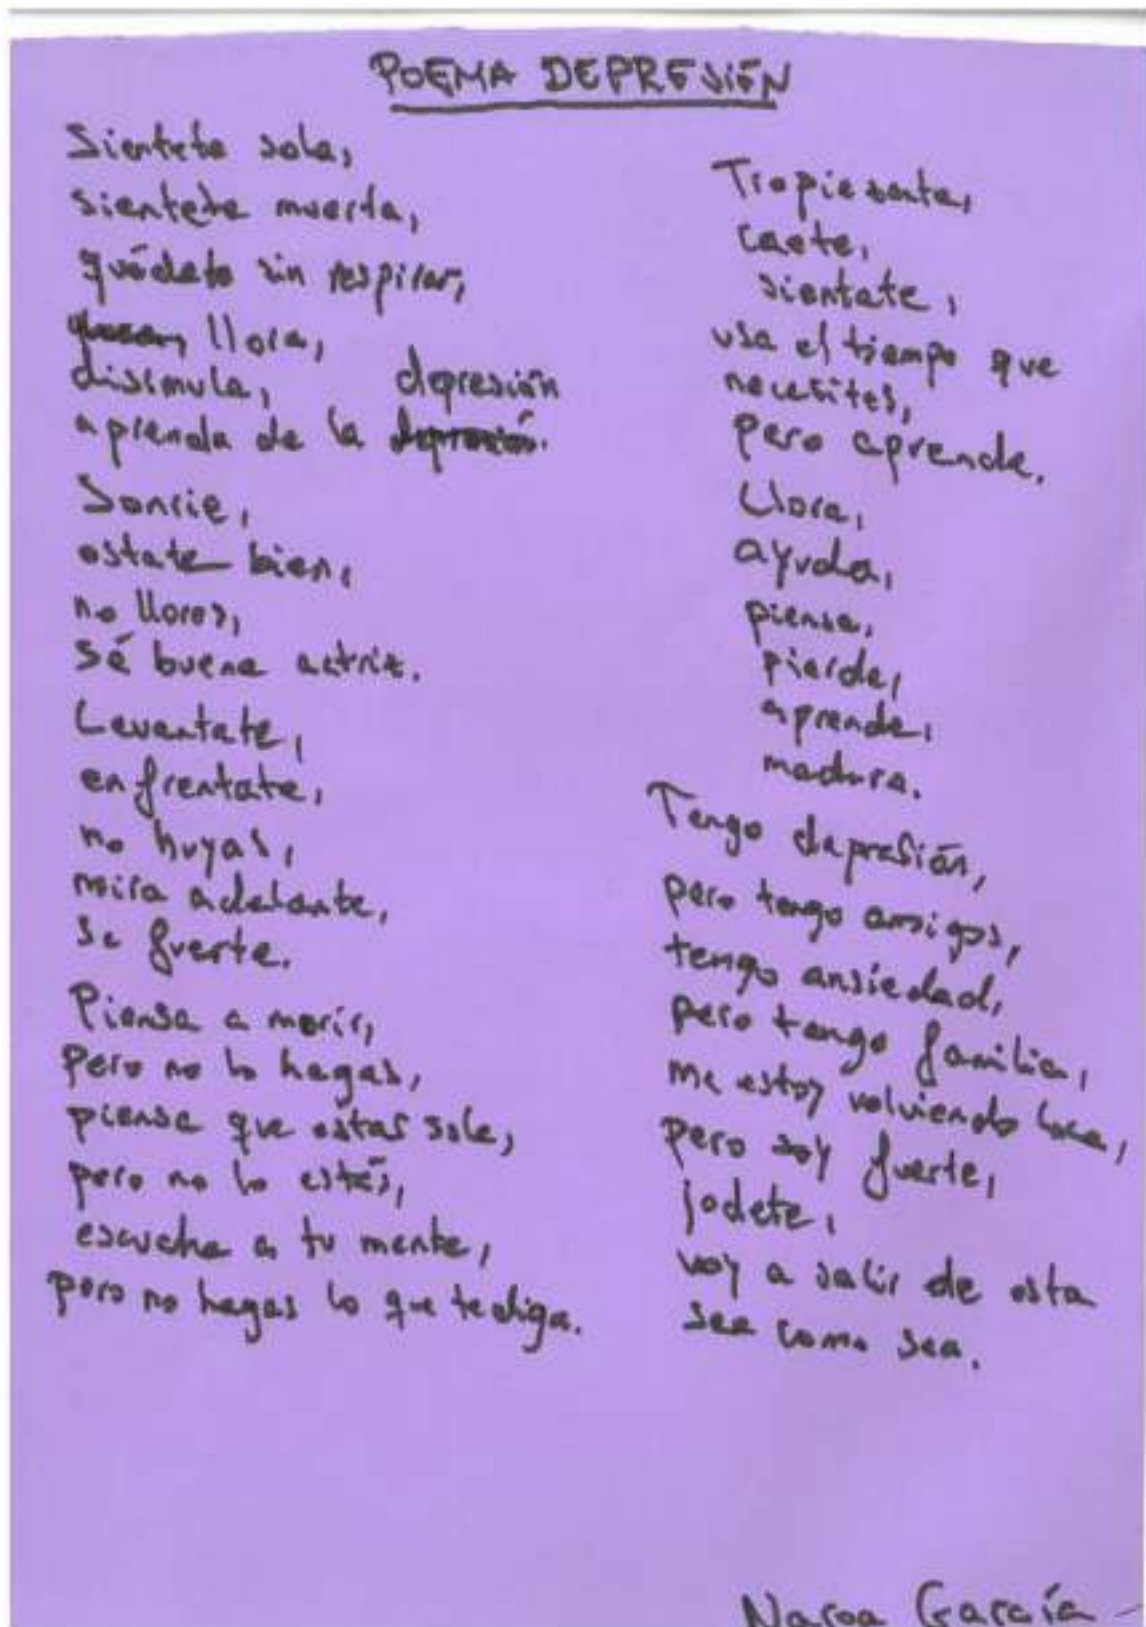 POEMA DEPRESIÓN
Sientete sola,
sientete muerta,
quédate sin respirar,
llora,
disimula,
aprende de la depresión.
Sonrie,
estate bien,
no llores,
sé buena actriz.
Levantate,
enfrentate,
no huyas,
mira adelante,
se fuerte.
Piensa a morir,
pero no lo hagas,
piensa que estas sola,
pero no lo estés,
escucha a tu mente,
pero no hagas lo que te diga.
Tropiesate,
caete,
sientate,
usa el tiempo que
necesites,
pero aprende.
Llora,
ayuda,
piensa,
pierde,
aprende,
madura.
Tengo depresión,
pero tengo amigos,
tengo ansiedad,
pero tengo familia,
me estoy volviendo loca,
pero soy fuerte,
jodete,
voy a salir de esta
sea como sea.
Naroa García